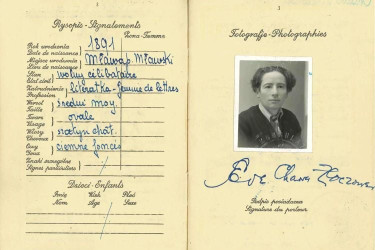 Rysopis-Signalements
Żona-Femme
Rok urodzenia
Date de naissance
1891
Miejsce urodzenia
Lieu de naissance
Stan
Etat civil
wolny célibataire
Zatrudnienie
Profession
literatka - femme de lettres
Wzrost
Taille
średni moy.
Twarz
Visage
ovale
Włosy
Cheveux
szatyn chât.
Oczy
Yeux
ciemne foncés
Znaki szczególne
Signes particuliers
Dzieci-Enfants
Imię Wiek Płeć
Nom Age Sexe
3
Fotografje-Photographies
Chawa
Podpis posiadacza
Signature du porteur